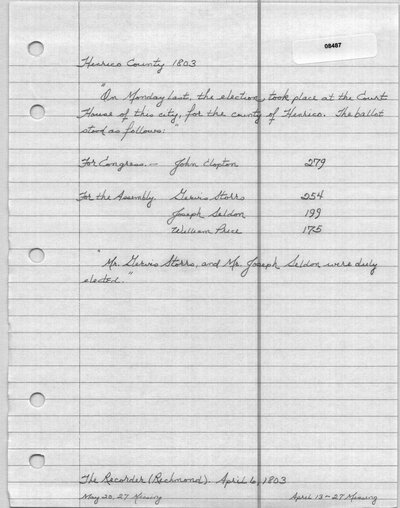 08487
Henrico County 1803
"On Monday last, the election took place at the Court
House of this city, for the county of Henrico. The ballot
stood as follows:"
For Congress. — John Clopton 279
For the Assembly. Gervis Storrs 254
Joseph Seldon 199
William Price 175
"Mr. Gervis Storrs, and Mr. Joseph Seldon were duly
elected."
The Recorder (Richmond). April 6, 1803
May 20, 27 Missing April 13-27 Missing